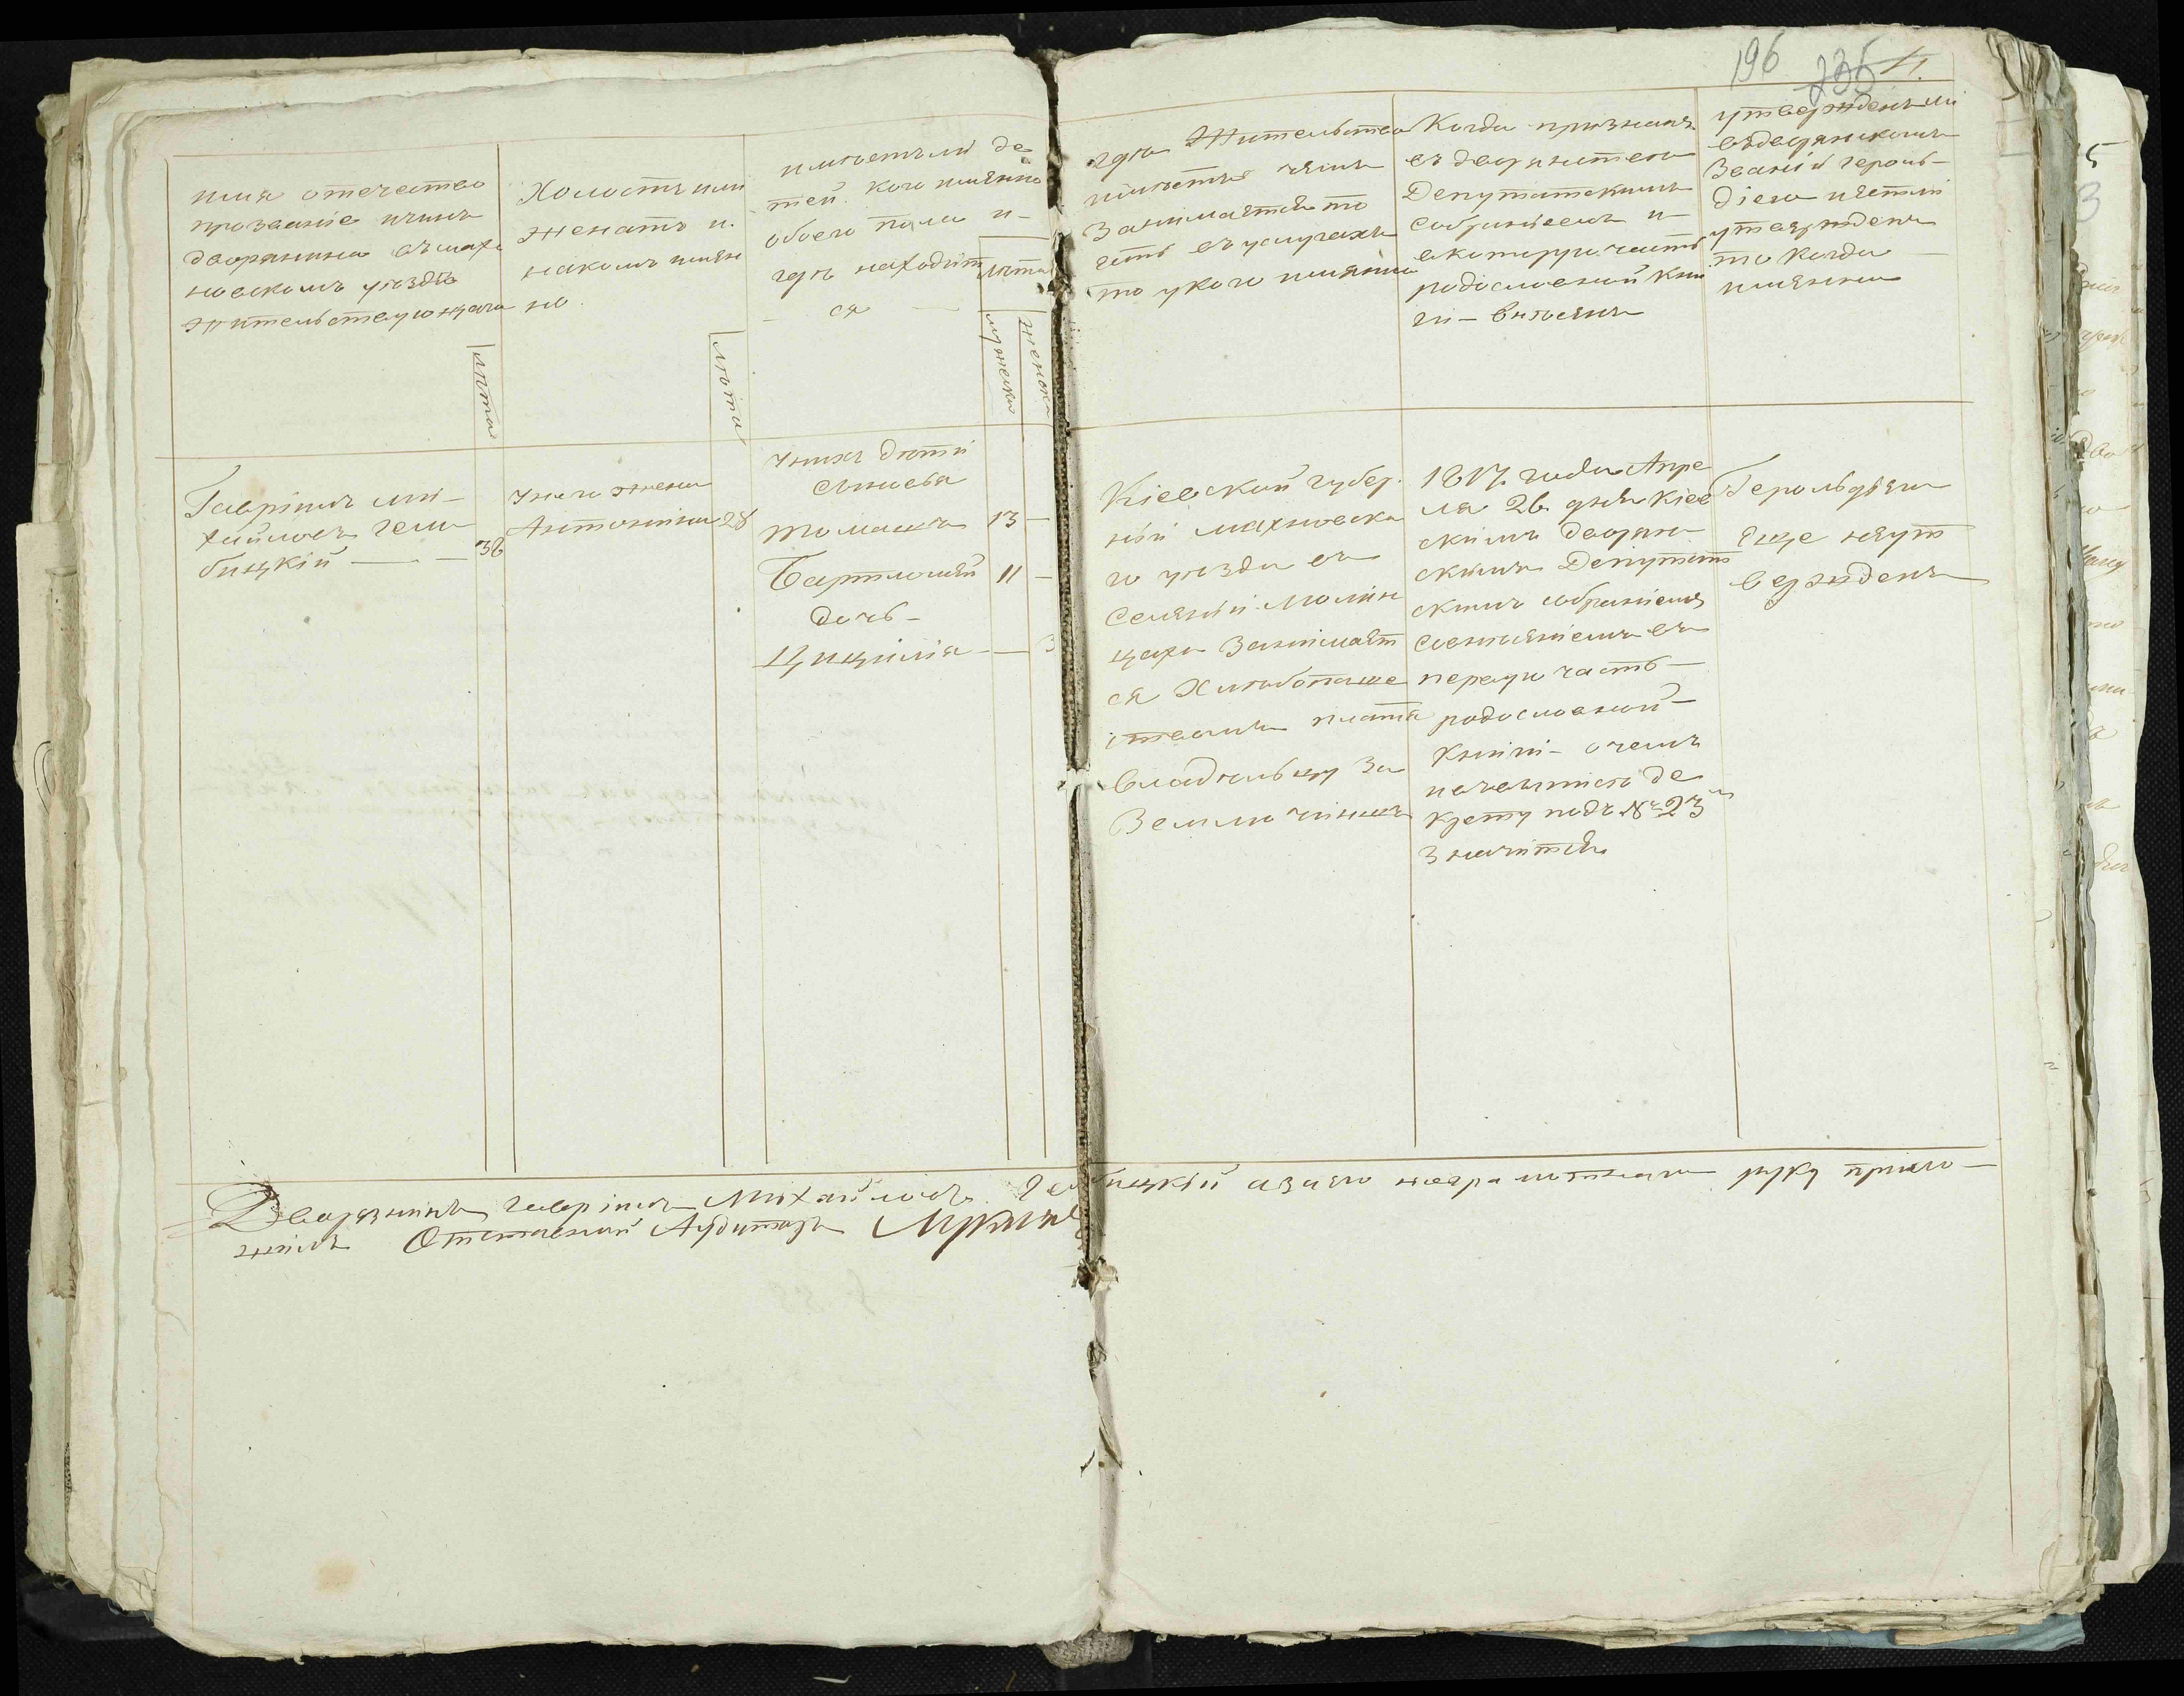 196 235
имя отечество
прозвание ичинъ
дворянина въмахъ
новскомъ уездѣ
жительствующаго
лѣта
Холостъ или
женатъ и.
накомъ имян
но.
лѣта
имѣетъли де
тей. кого имянно
обоего пола и-
гдѣ находит
ся
лѣта
мужеска
женска
гдѣ Жительство
имѣетъ чемъ
Занимается то
есть въуслугахъ
то укого имянно
Когда признанъ
въ дворянствѣ
Депутатскимъ
Собраниемъ и-
вкоторую часть
родословной кни
ги - внѣсенъ
утвержденъли
въдворянскомъ
Званіи героль-
діею иестли
утвержденъ
то когда
имянно
Гавріилъ ми-
хайловъ
бицкій — — 38
унего жена
Антонина 28
унихъ дѣти
сыновья
томашъ 13 -
Бартломей 11 -
дочь -
Цицилія - — 3
Кіевской губер.
ніи махновска
го уѣзда въ
Селеніи Молин
цахъ Занимает
ся Хлѣбопаше
ствомъ платя
владѣльцу За
Землю чиншъ
1817. года Апре
ля 26 дня Кіев
скимъ дворян
скимъ Депутат
скимъ собраниемъ
совнѣсеніемъ въ
первую часть -
родословной -
книги - очемъ
крету подъ № 23
Значится
Герольдіею
Еще неут
вержденъ
Дворянинъ Гавріилъ Михайловъ Гембицкій азаего неграмотнаго руку прило-
жилъ Отставной Аудиторъ